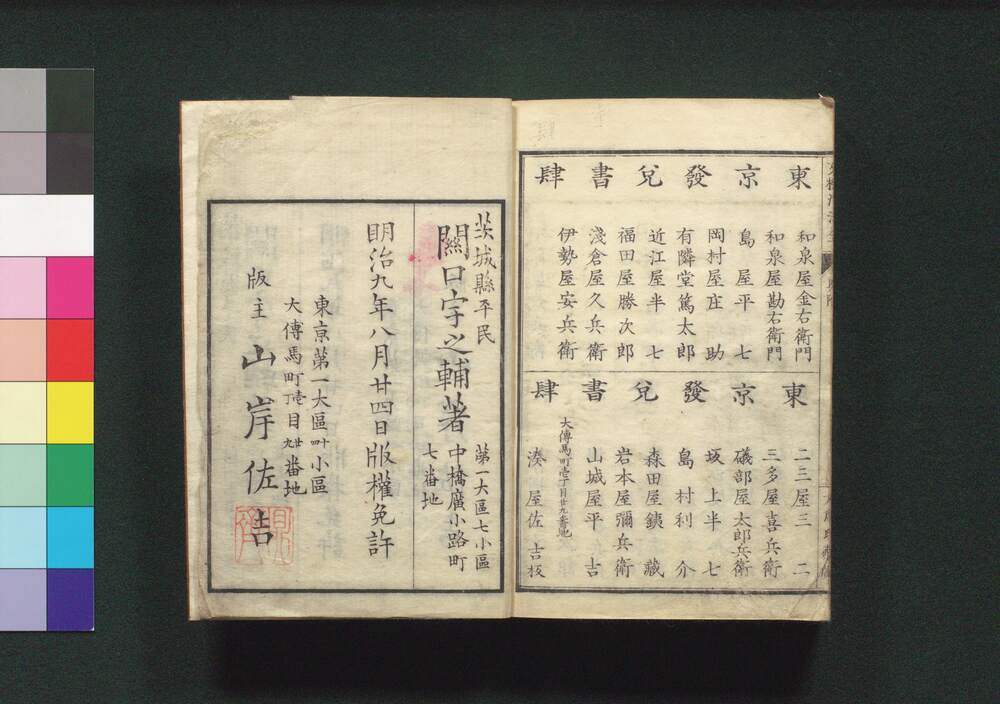 東京發兌書肆
和泉屋金右衛門
和泉屋勘右衛門
島屋平七
岡村屋庄助
有隣堂篤太郎
近江屋半七
福田屋勝次郎
淺倉屋久兵衛
伊勢屋安兵衛
東京發兌書肆
二三屋三二
三多屋喜兵衛
礒部屋太郎兵衛
坂上半七
島村利介
森田屋銕藏
岩本屋彌兵衛
山城屋平吉
大傳馬町壱丁目廿九番地
湊屋佐吉板
茨城縣平民
關口宇之輔著
第一大區七小區
中橋廣小路町
七番地
明治九年八月廿四日版權免許
東京第一大區四十小區
大傳馬町壱丁目廿九番地
版主 山岸佐吉